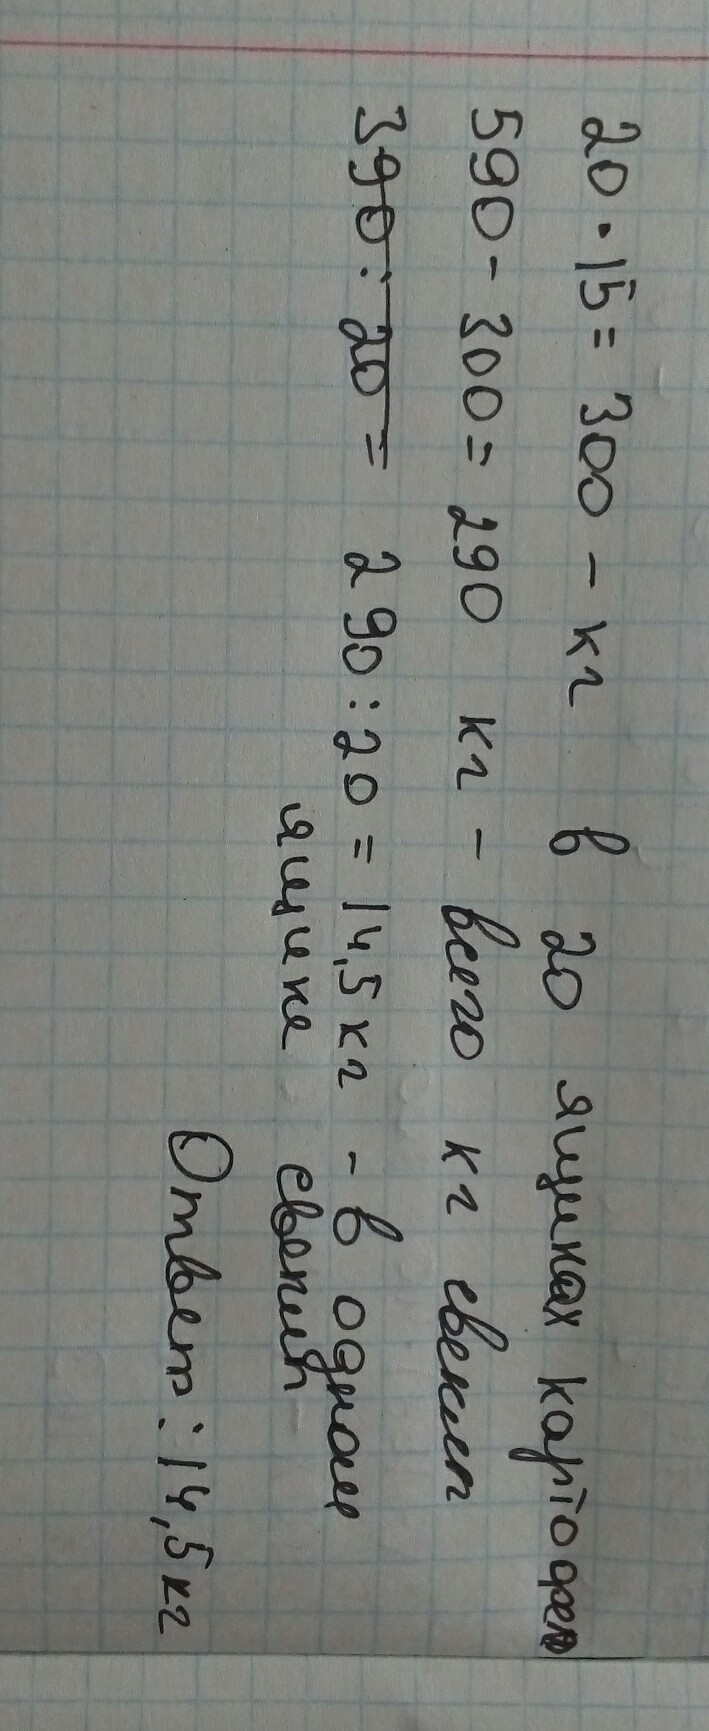 20 · 15 = 300 - кг в 20 ящиках картофел
590 - 300 = 290 кг - всего кг свеклы
390 : 20 = 290 : 20 = 14,5 кг - в одном
ящике свеклы
Ответ : 14,5 кг